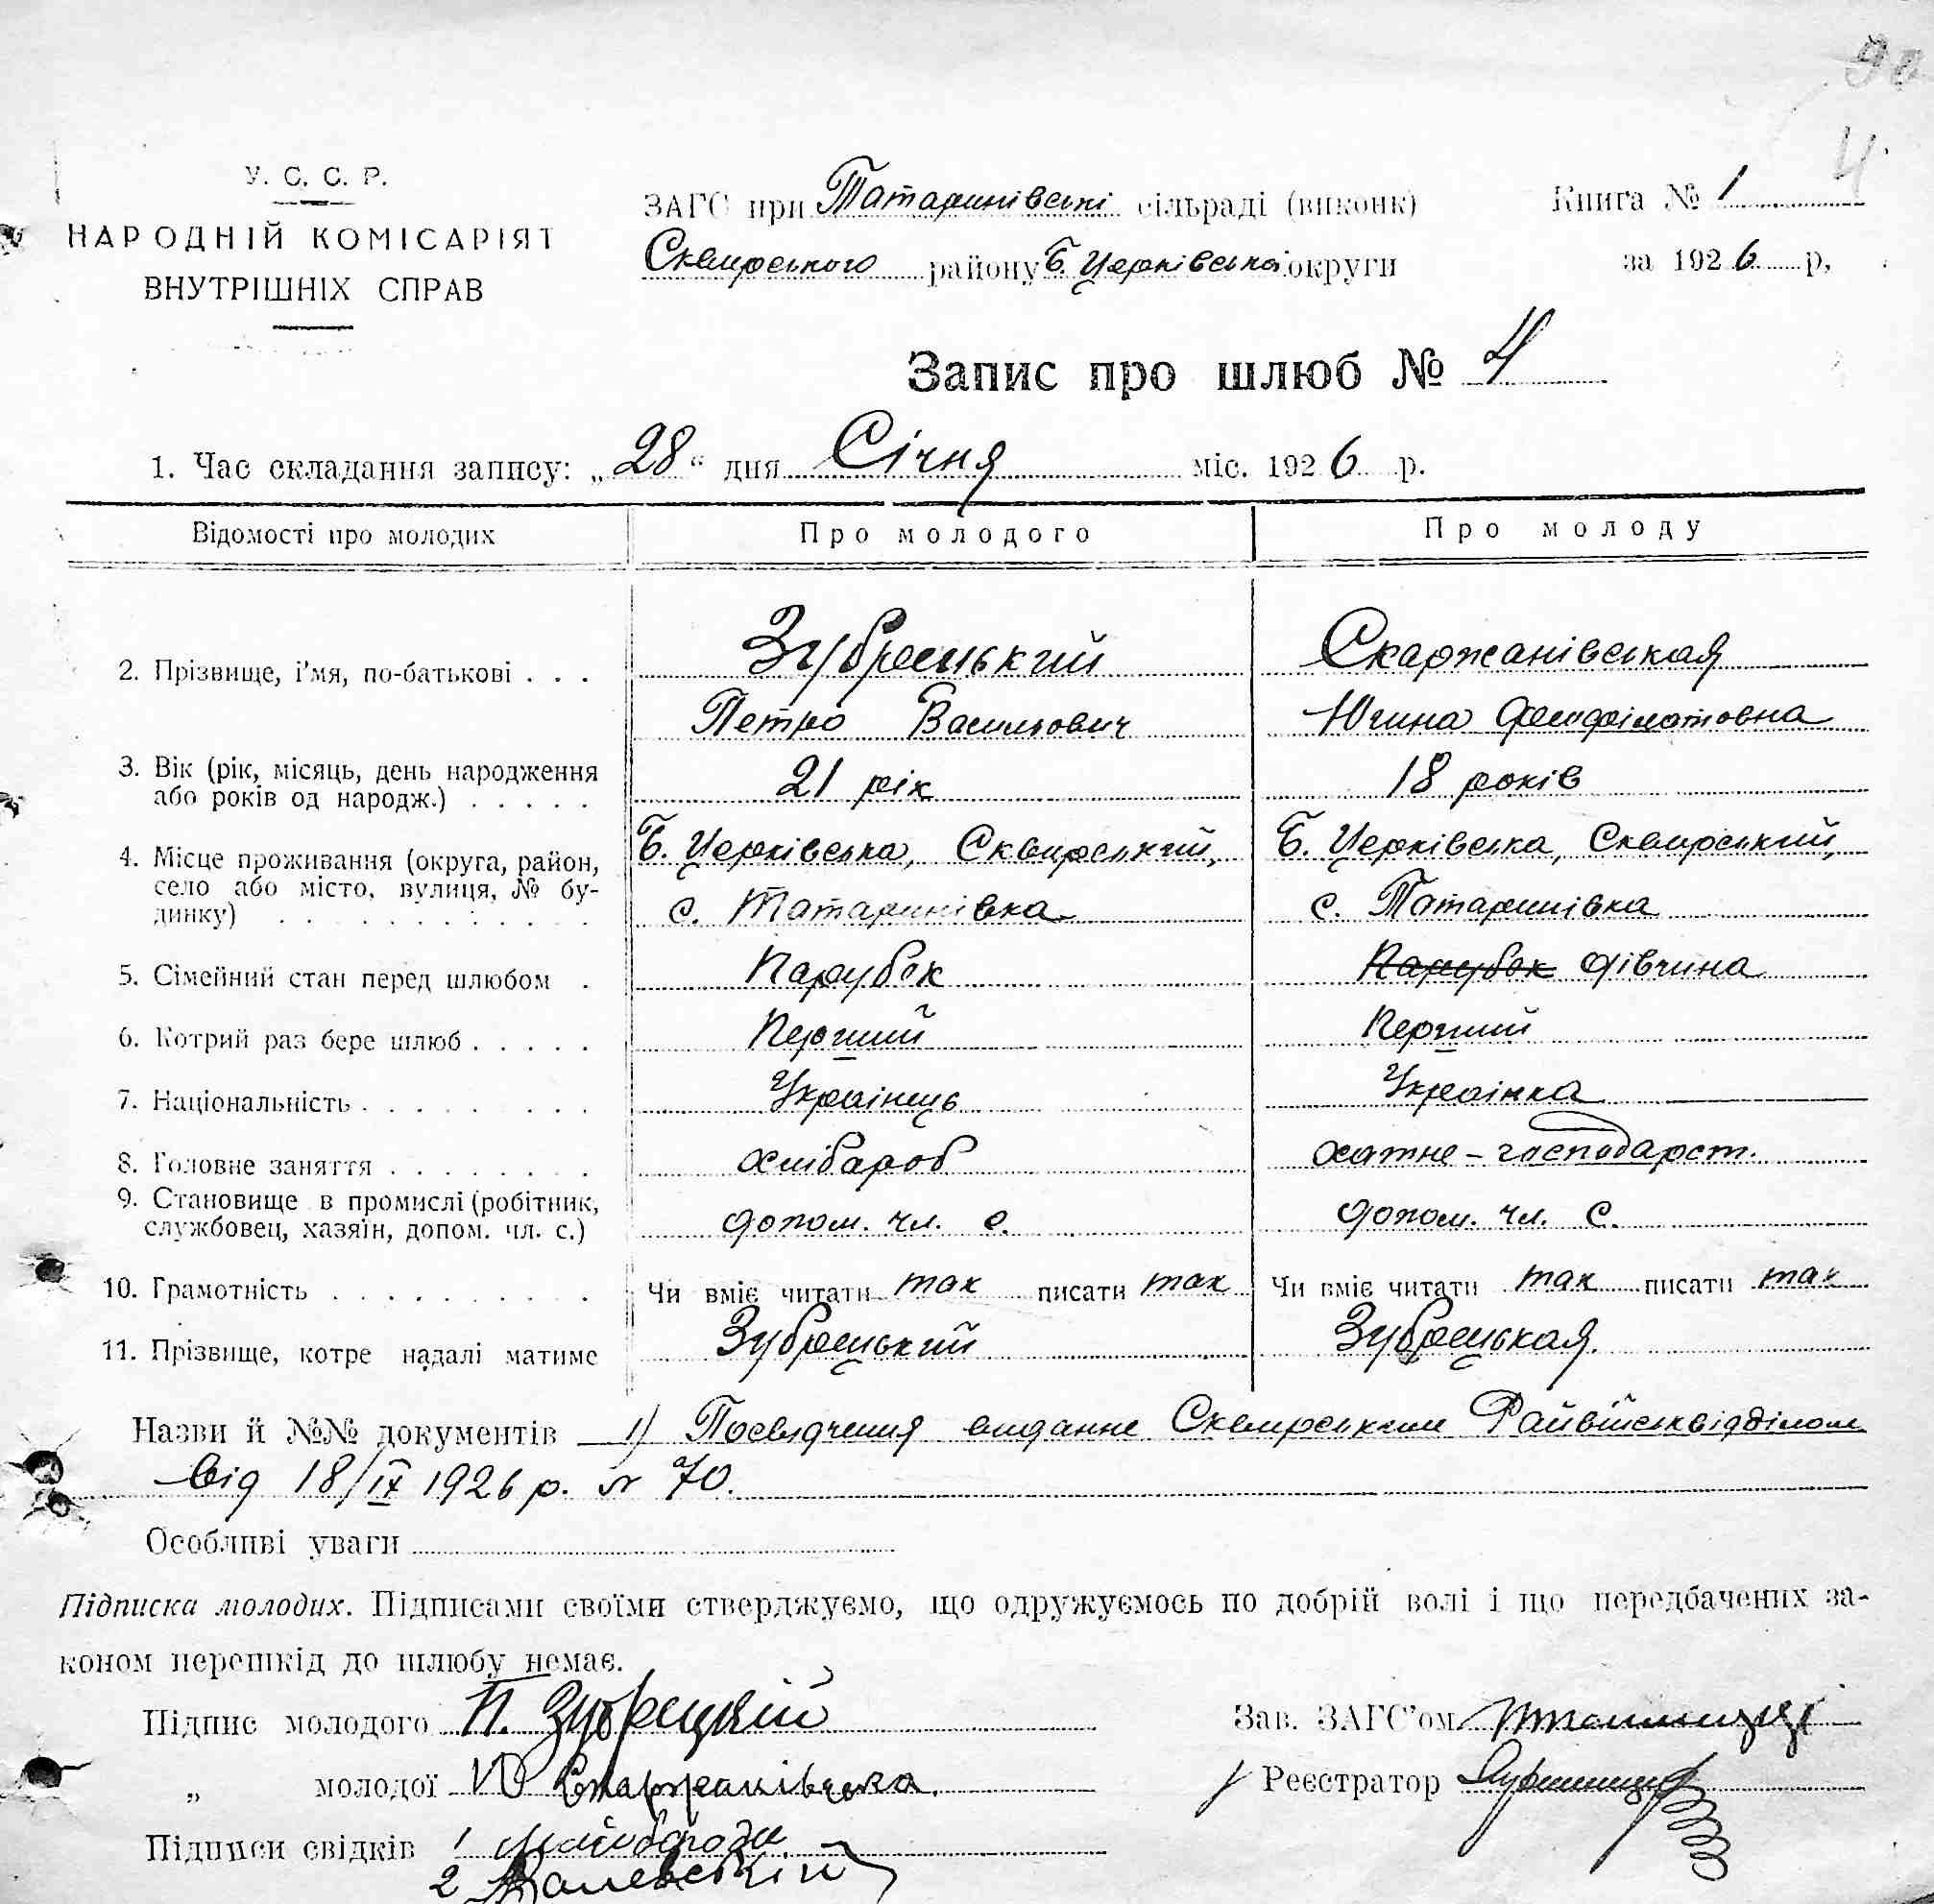 У. С. С. Р.
НАРОДНІЙ КОМІСАРІЯТ
ВНУТРІШНІХ СПРАВ
ЗАГС при Татаринівські сільраді (виконк)
Сквирського району Б. Церківської округи
Книга № 1
за 1926 р,
4
Запис про шлюб № 4
1. Час складання запису: „28“ дня Січня міс. 1926 р.
Відомості про молодих Про молодого Про молоду
2. Прізвище, і'мя, по-батькові . . . Зубрецький Скаржанівськая
Петро Васильович Югина
3. Вік (рік, місяць, день народження
або років од народж.) . . . . . 21 рік 18 років
4. Місце проживання (округа, район, Б. Церківська, Сквирський, Б. Церківська, Сквирський,
село або місто, вулиця, № бу-
динку) с. Татаринівка с. Татаринівка
5. Сімейний стан перед шлюбом . Парубок Парубок дівчина
6. Котрий раз бере шлюб . . . . . Перший Перший
7. Національність . . . . . . . . Українець Українка
8. Головне заняття . . . . . . . . хлібароб хатне-господарст.
9. Становище в промислі (робітник,
службовец, хазяїн, допом. чл. с.) допом. чл. с. допом. чл. с.
10. Грамотність . . . . . . . . . Чи вміє читати так писати так Чи вміє читати так писати так
11. Прізвище, котре надалі матиме Зубрецький Зубрецькая.
Назви й №№ документів 1) Посвідчення видане Сквирським Райвійськвідділом
Від 18/IX 1926 р. № 70.
Особливі уваги
Підписка молодих. Підписами своїми стверджуємо, що одружуємось по добрій волі і що передбачених за-
коном перешкід до шлюбу немає.
Підпис молодого П. Зубрецкій
Зав. ЗАГС'ом
„ молодої Ю Скаржанівська.
Реєстратор
Підписи свідків 1
2